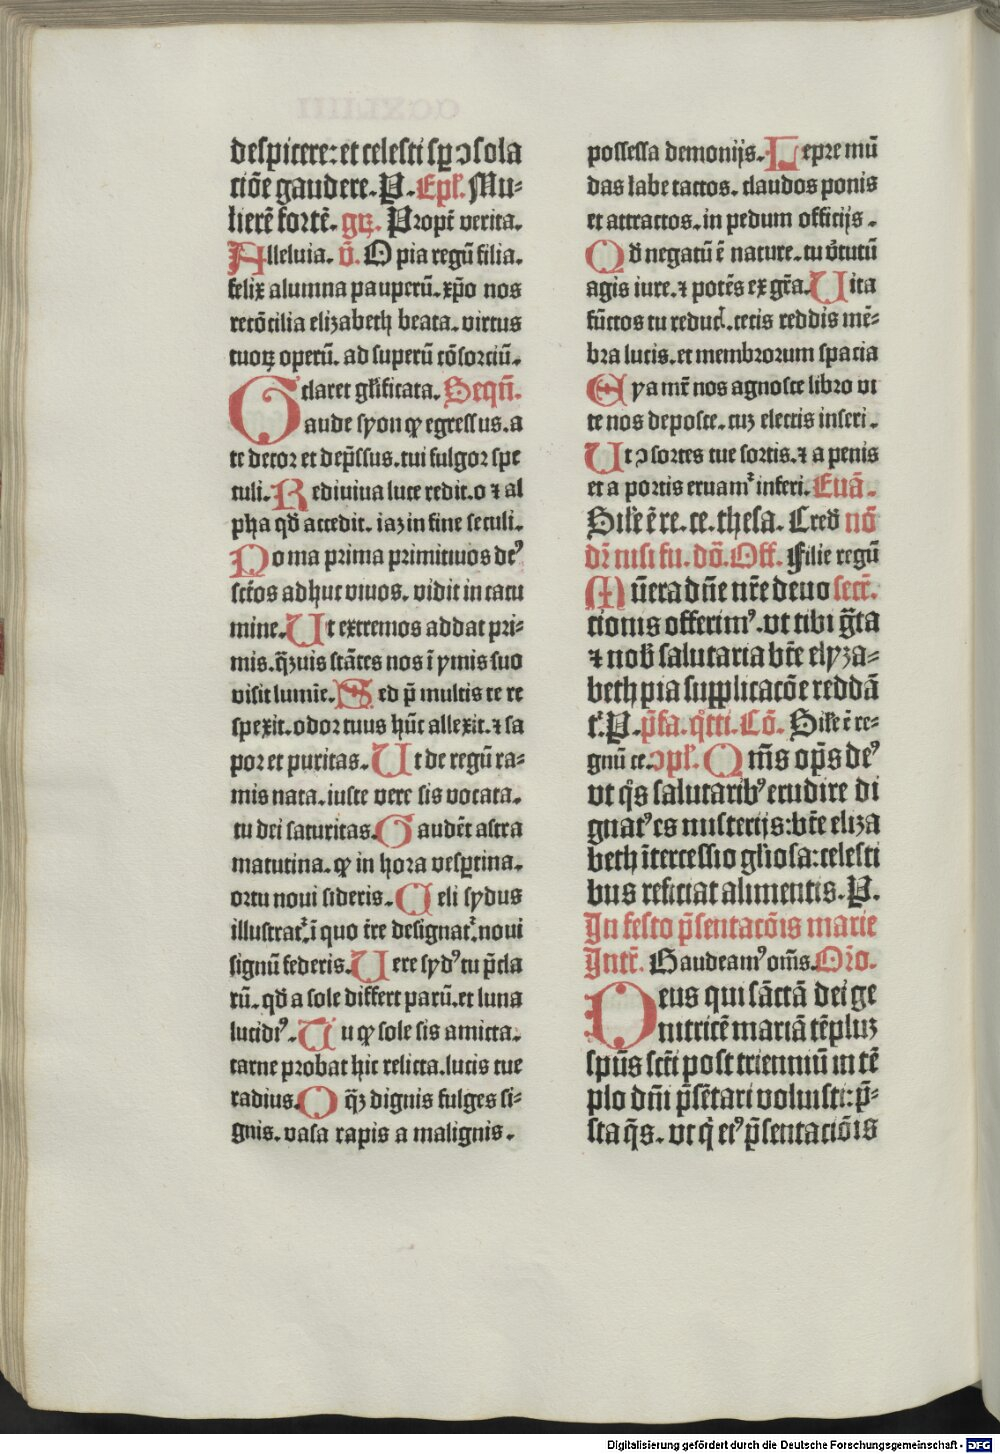 despicere: et celesti sp̱ ↄsola
ciōe gaudere. P. Epl̓. Mu⸗
lierē fortē. gꝶ. Propt̓ verita.
Alleluia. v̄. O pia regū filia.
felix alumna pauperū. xp̄o nos
recōcilia elizabeth beata. virtus
tuoꝝ operū. ad superū cōsorciū.
claret gl̓ificata. Sequē̄.
Gaude syon ꝙ egressus. a
te decor et dep̄ssus. tui fulgor spe
culi. Rediviva luce redit. o ⁊ al
pha qd̓ accedit. iaz in fine seculi.
Roma prima primitivos deꝰ
sct̄os adhuc vivos. vidit in cacu
mine. Ut extremos addat pri⸗
mis. qͣzuis stātes nos ī ymis suo
visit lumīe. Sed p̄ multis te re
spexit. odor tuus hūc allexit. ⁊ sa
por et puritas. Ut de regū ra⸗
mis nata. iuste vere sis vocata.
tu dei saturitas. Gaudēt astra
matutina. ꝙ in hora vesp̱tina.
ortu novi sideris. Celi sydus
illustrat᷒. ī quo t̄re designat᷒. novi
signū federis. Vere sydꝰ tu p̄cla
rū. qd̓ a sole differt parū. et luna
lucidiꝰ. Vu ꝙ sole sis amicta.
carne probat hic relicta. lucis tue
radius. O qͣz dignis fulges si⸗
gnis. vasa rapis a malignis.
possessa demonijs. Lepre mū
das labe tactos. claudos ponis
et attractos. in pedum officijs.
Qd̓ negatū ē nature. tu v̓tutū
agis iure. ⁊ potēs ex gr̄a. Vita
fūctos tu reducl̓. cecis reddis mē⸗
bra lucis. et membrorum spacia
Eya mr̄ nos agnosce libro vi
te nos deposce. cuz electis inseri.
Ut ↄsortes tue sortis. ⁊ a penis
et a portis eruam᷒ inferi. Euā.
Sil̓e ē re. ce. thesa. Cred̓ nō
dr̄ nisi fu. dō. Off. Filie regū
Mūera dn̄e nr̄e devo secr̄.
cionis offerimꝰ. vt tibi gͣta
⁊ nob̓ salutaria bt̄e elyza⸗
beth pia supplicacōe reddā
t᷒. P. p̄fa. qͦtti. Cō. Sil̓e ē re⸗
gnū ce. ↄpl̓. Om̄s op̄s deꝰ
vt qͥs salutaribꝰ erudire di
gnatꝰ es misterijs: bt̄e eliza
beth ītercessio gl̓iosa: celesti
bus reficiat alimentis. P.
In festo p̄sentacōis marie
Intr̄. Gaudeamꝰ om̄s. Or̄o.
Deus qui sāctā dei ge
nitricē mariā tēpluz
spūs scti post trienniū in tē
plo dn̄i p̄sētari voluisti: p̄⸗
sta qͣs. vt qͥ eiꝰ p̄sentaciōis